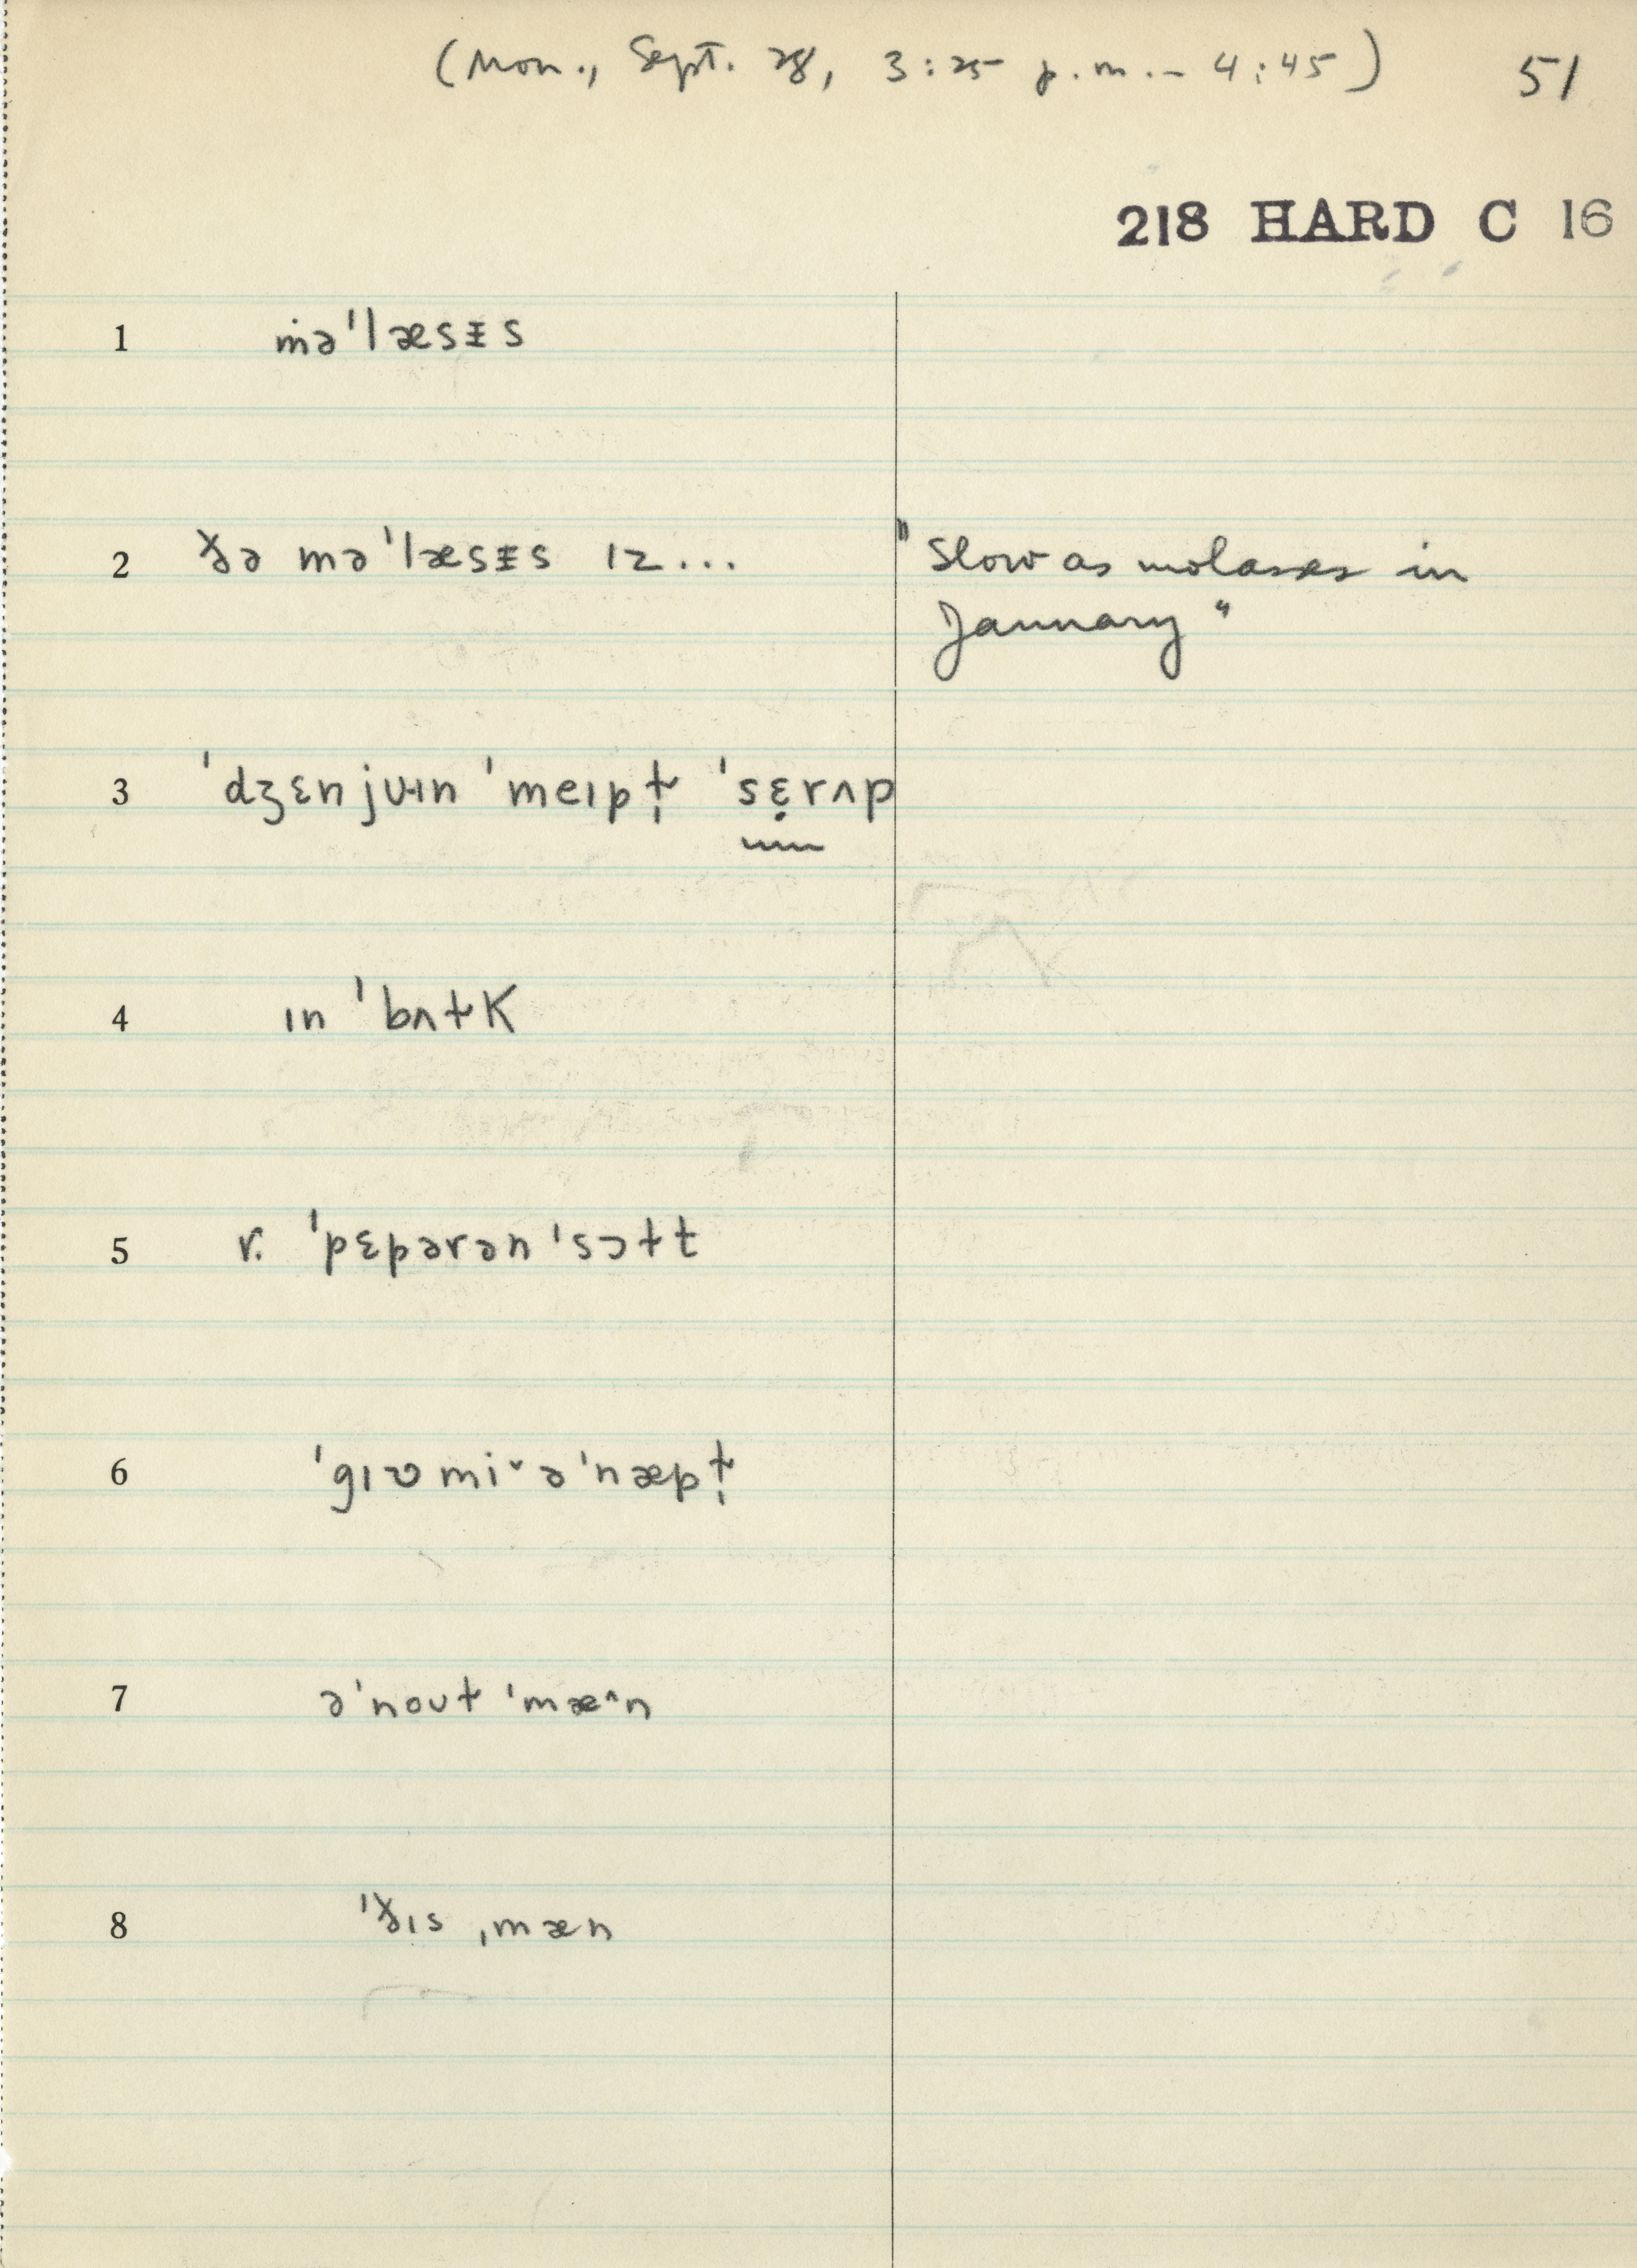 (Mon., Sept. 28, 3:25 p.m. - 4:45) 51
218 HARD C 16
1 ṁəˈlæsɪ̵s
2 ðə məˈlæsɪ̵s ɪz... "Slow as molasses in
January"
3 ˈdʒɛnjʊɪn ˈmeɪpɫ̩ ˈsɛ̣rʌp
4 ɪn ˈbʌɫk
5 r. ˈpɛpərənˈsɔɫt
6 ˈgɪʊmiˇəˈnæpɫ̩
7 əˈnoʊɫ ˈmæ^n
8 ˈðɪs ˌmæn